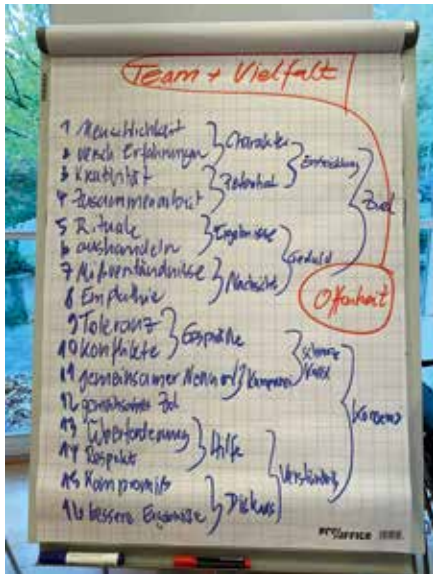 Team + Vielfalt
1 Menschlichkeit
2 versch Erfahrungen
3 Kreativität
4 Zusammenarbeit
5 Rituale
6 aushandeln
7 Mißverständnisse
8 Empathie
9 Toleranz
10 Konflikte
11 gemeinsamer Nenner
12 gemeinsames Ziel
13 Überforderung
14 Respekt
15 Kompromiß
16 bessere Ergebnisse
Charakter
Potential
Ergebnisse
Nachsicht
Gespräche
Hilfe
Diskurs
Entwicklung
Geduld
Verständnis
Ziel
Konsens
Offenheit
OFFICE